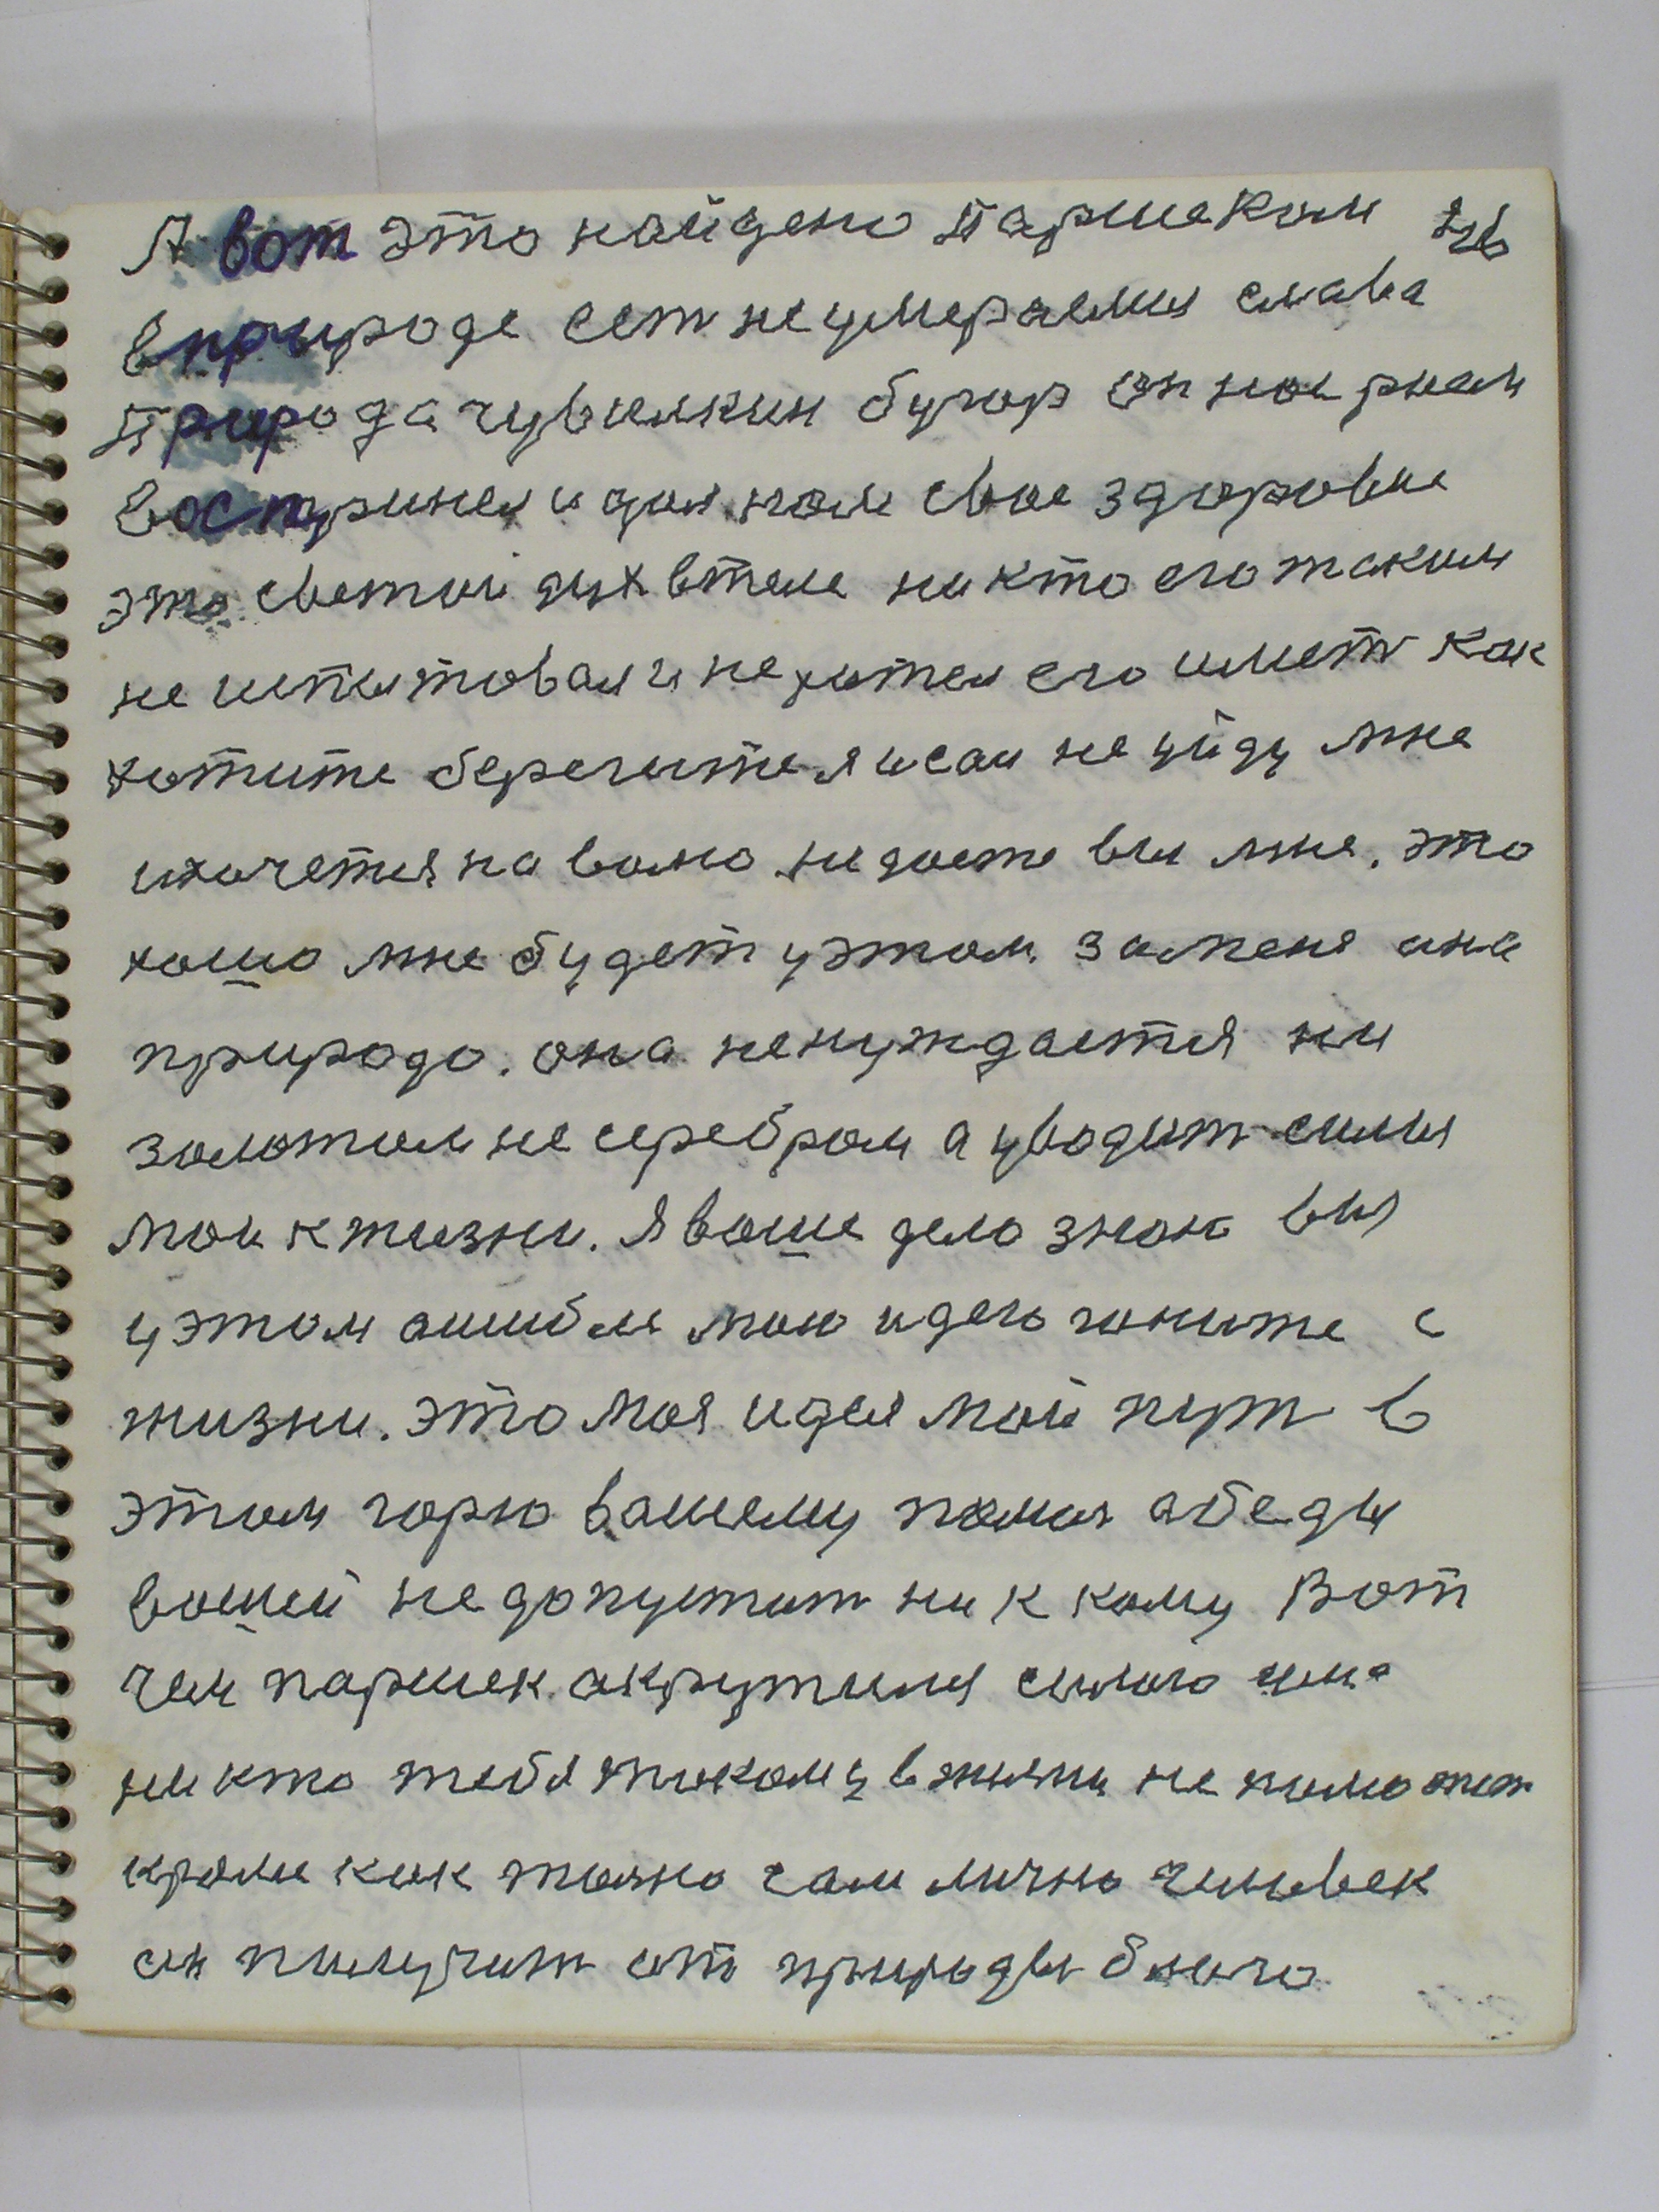 А вот это найдено Паршеком
в природе ест неумераемия слава
природа чувилкин бугор он
воспринел и дал нам свое здоровие
это светой дух в теле никто его таким
не испитовал и не хотел его имет как
хотите берегите я и сам не уйду мне
и хочется на волю не даете вы мне. это
хошо мне будет у этом. за меня она
природа. она не нуждается ни
золотом не серебром а уводит
мои к жизни. я ваше дело знаю вы
у этом мою идею гоните с
жизни. это моя идея мой пут в
этом горю вашему а беды
вошей не допустит ни к кому Вот
чем паршек акрутился
ни кто тебя такому в жизни не поможет
кроме как толко сам лично человек
он получит от природы благо